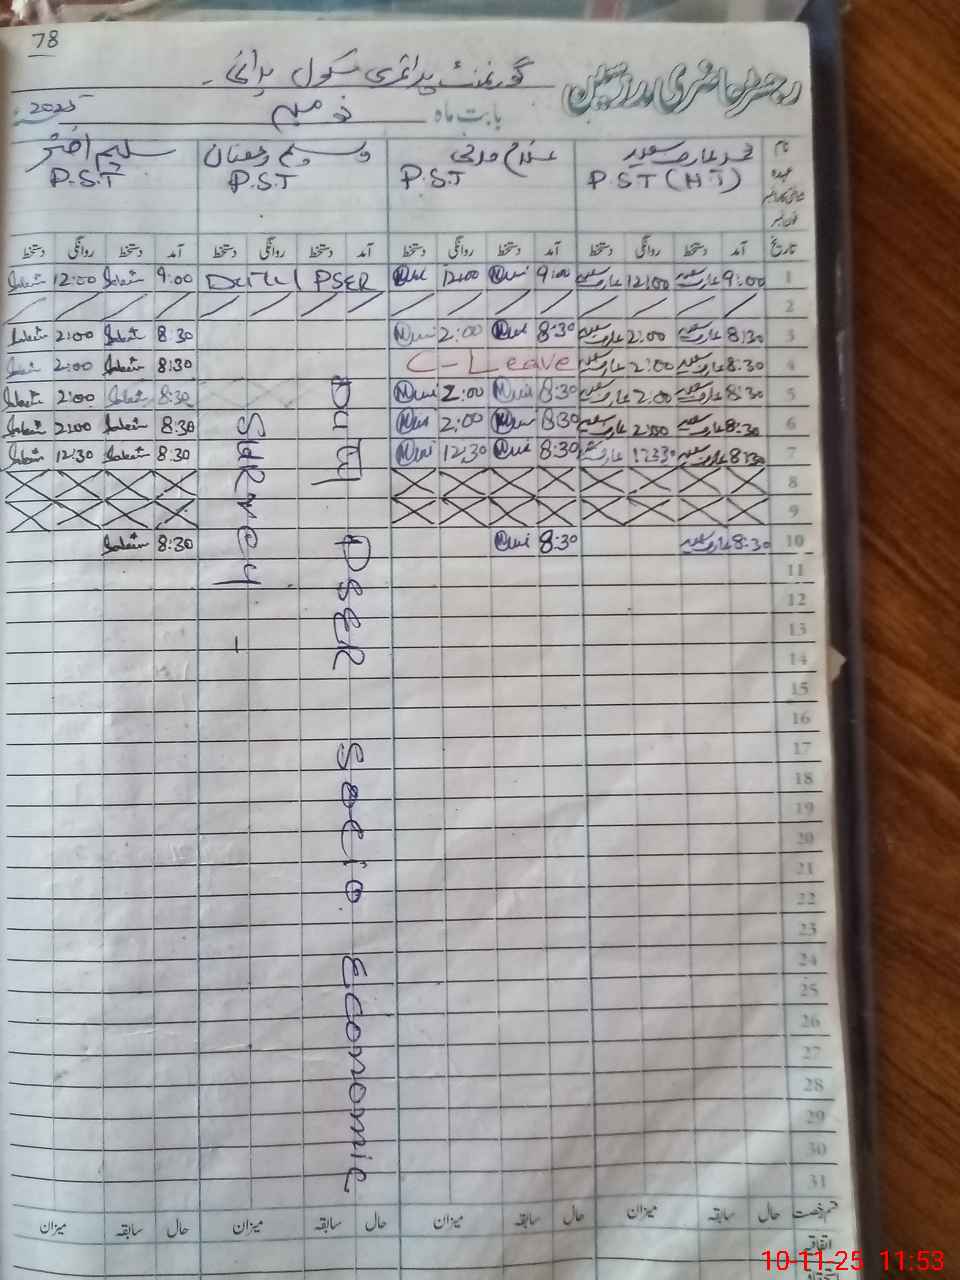 78
رجسٹر حاضری مدرسین گورنمنٹ پرائمری سکول
بابت ماہ نومبر 2025
نام محمد عارف سعید غلام مدنی وسیم سلیم اختر
عہدہ P.S.T (H.T) P.S.T P.S.T P.S.T
تاریخ آمد دستخط روانگی دستخط آمد دستخط روانگی دستخط آمد دستخط روانگی دستخط آمد دستخط روانگی دستخط
1 9:00 عارف سعید 12:00 عارف سعید 9:00 12:00 Duty PSER 9:00 12:00
2
3 8:30 عارف سعید 2:00 عارف سعید 8:30 2:00 8:30 2:00
4 8:30 عارف سعید 2:00 عارف سعید C-Leave 8:30 2:00
5 8:30 عارف سعید 2:00 عارف سعید 8:30 2:00 8:30 2:00
6 8:30 عارف سعید 2:00 عارف سعید 8:30 2:00 8:30 2:00
7 8:30 عارف سعید 12:30 عارف سعید 8:30 12:30 8:30 12:30
8
9
10 8:30 عارف سعید 8:30 8:30
Duty PSER Socio Economic
Survey -
11
12
13
14
15
16
17
18
19
20
21
22
23
24
25
26
27
28
29
30
31
قسم رخصت حال سابقہ میزان حال سابقہ میزان حال سابقہ میزان حال سابقہ میزان
اتفاقیہ
10-11-25 11:53